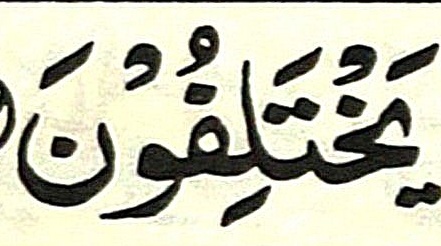 يَخْتَلِفُوْنَ